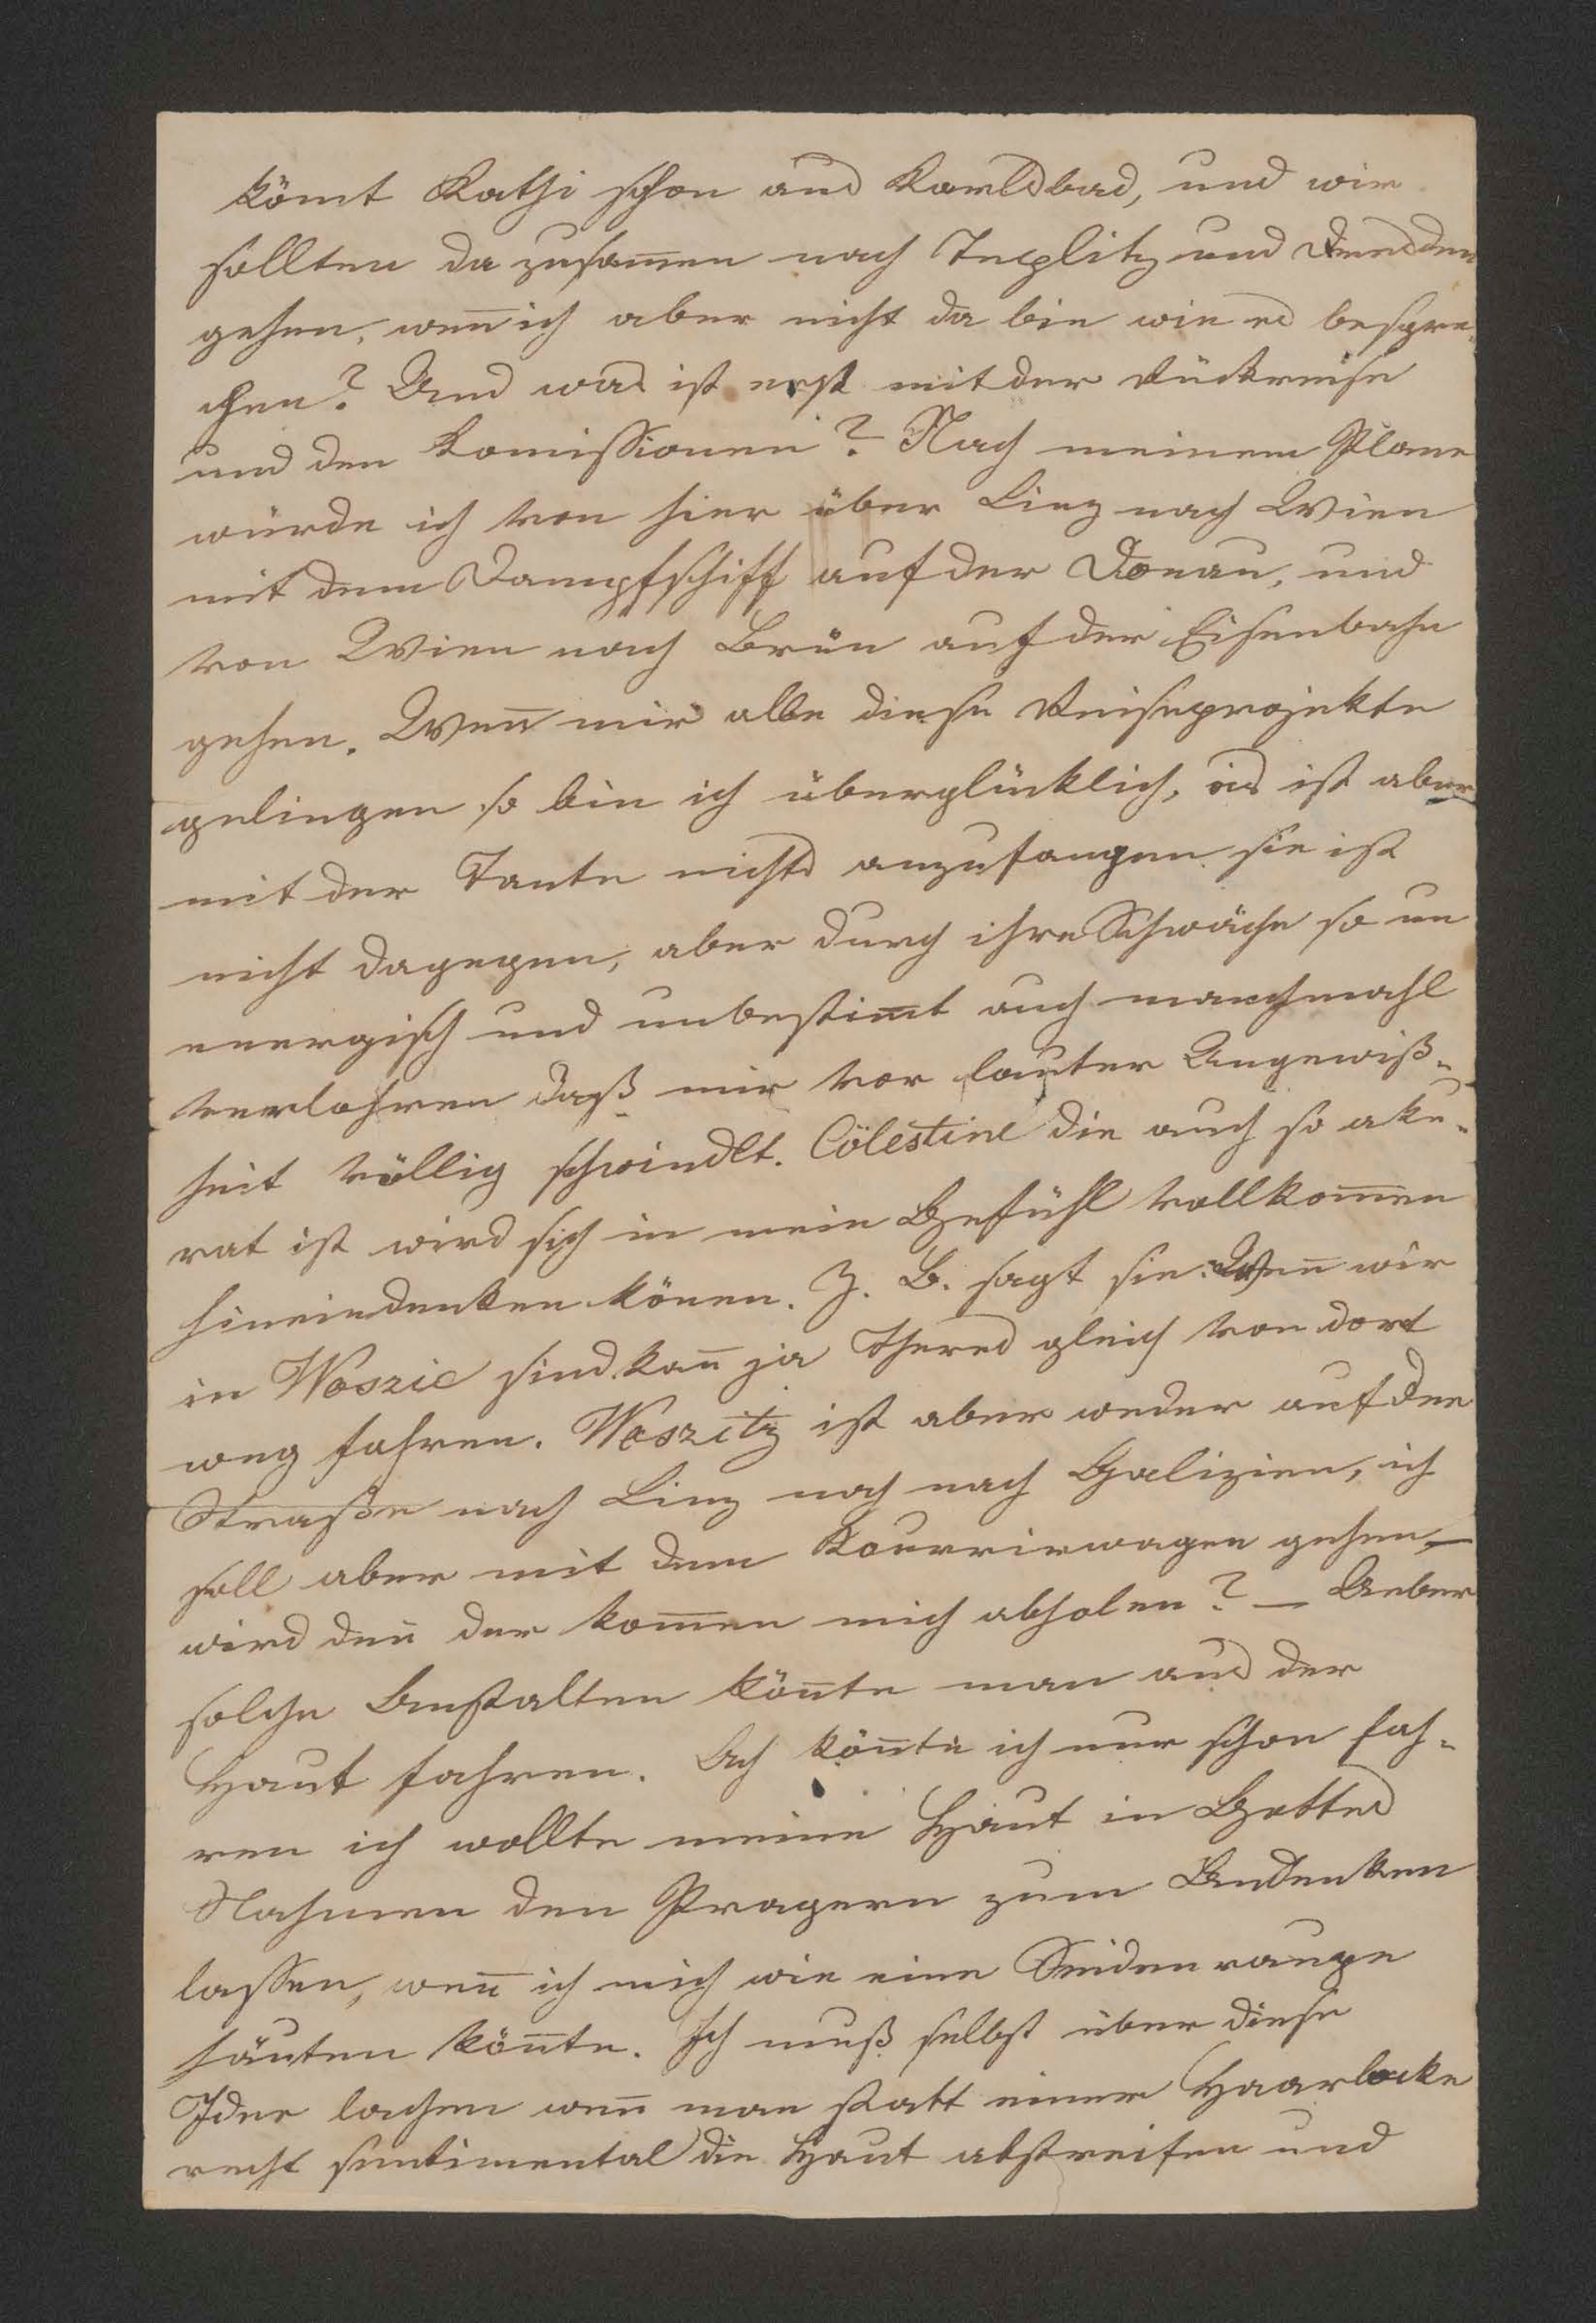 kömt Kathi schon aus Karlsbad, und wir
sollten da zusam̅en nach Teplitz und Dresden
gehen, wen̅ ich aber nicht da bin wie es bespre-
chen? Und was ist erst mit der Rückreise
und den Komissionen? Nach meinem Plane
würde ich von hier über Linz nach Wien
mit dem Dampfschiff auf der Donau, und
von Wien nach Brün auf der Eisenbahn
gehen. Wen̅ mir alle diese Reiseprojekte
gelingen so bin ich überglücklich, es ist aber
mit der Tante nichts anzufangen sie ist
nicht dagegen, aber durch ihre Schwäche so un
energisch und unbestim̅t auch manchmahl
verlohren daß mir vor lauter Ungewiß-
heit völlig schwindlt. Cölestine die auch so aku-
rat ist wird sich in mein Gefühl vollkom̅en
hineindenken könen. Z. B. sagt sie: Wen̅ wir
in Woszic sind kan̅ ja Theres gleich von dort
weg fahren. Woszitz ist aber weder auf der
Straße nach Linz noch nach Galizien, ich
soll aber mit dem Kourrirwagen gehen –
wird den̅ der kom̅en mich abholen? – Ueber
solche Anstalten kön̅te man aus der
Haut fahren. Ach kön̅te ich nur schon fah-
ren ich wollte meine Haut in Gottes
Nahmen den Pragern zum Andenken
lassen, wen̅ ich mich wie eine Seidenraupe
häuten kön̅te. Ich muß selbst über diese
Idee lachen wen̅ man statt einer Haarlocke
recht sentimental die Haut abstreifen und